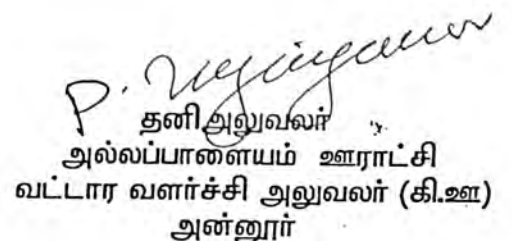 தனி அலுவலர்
அல்லப்பாளையம் ஊராட்சி
வட்டார வளர்ச்சி அலுவலர் (கி.ஊ)
அன்னூர்